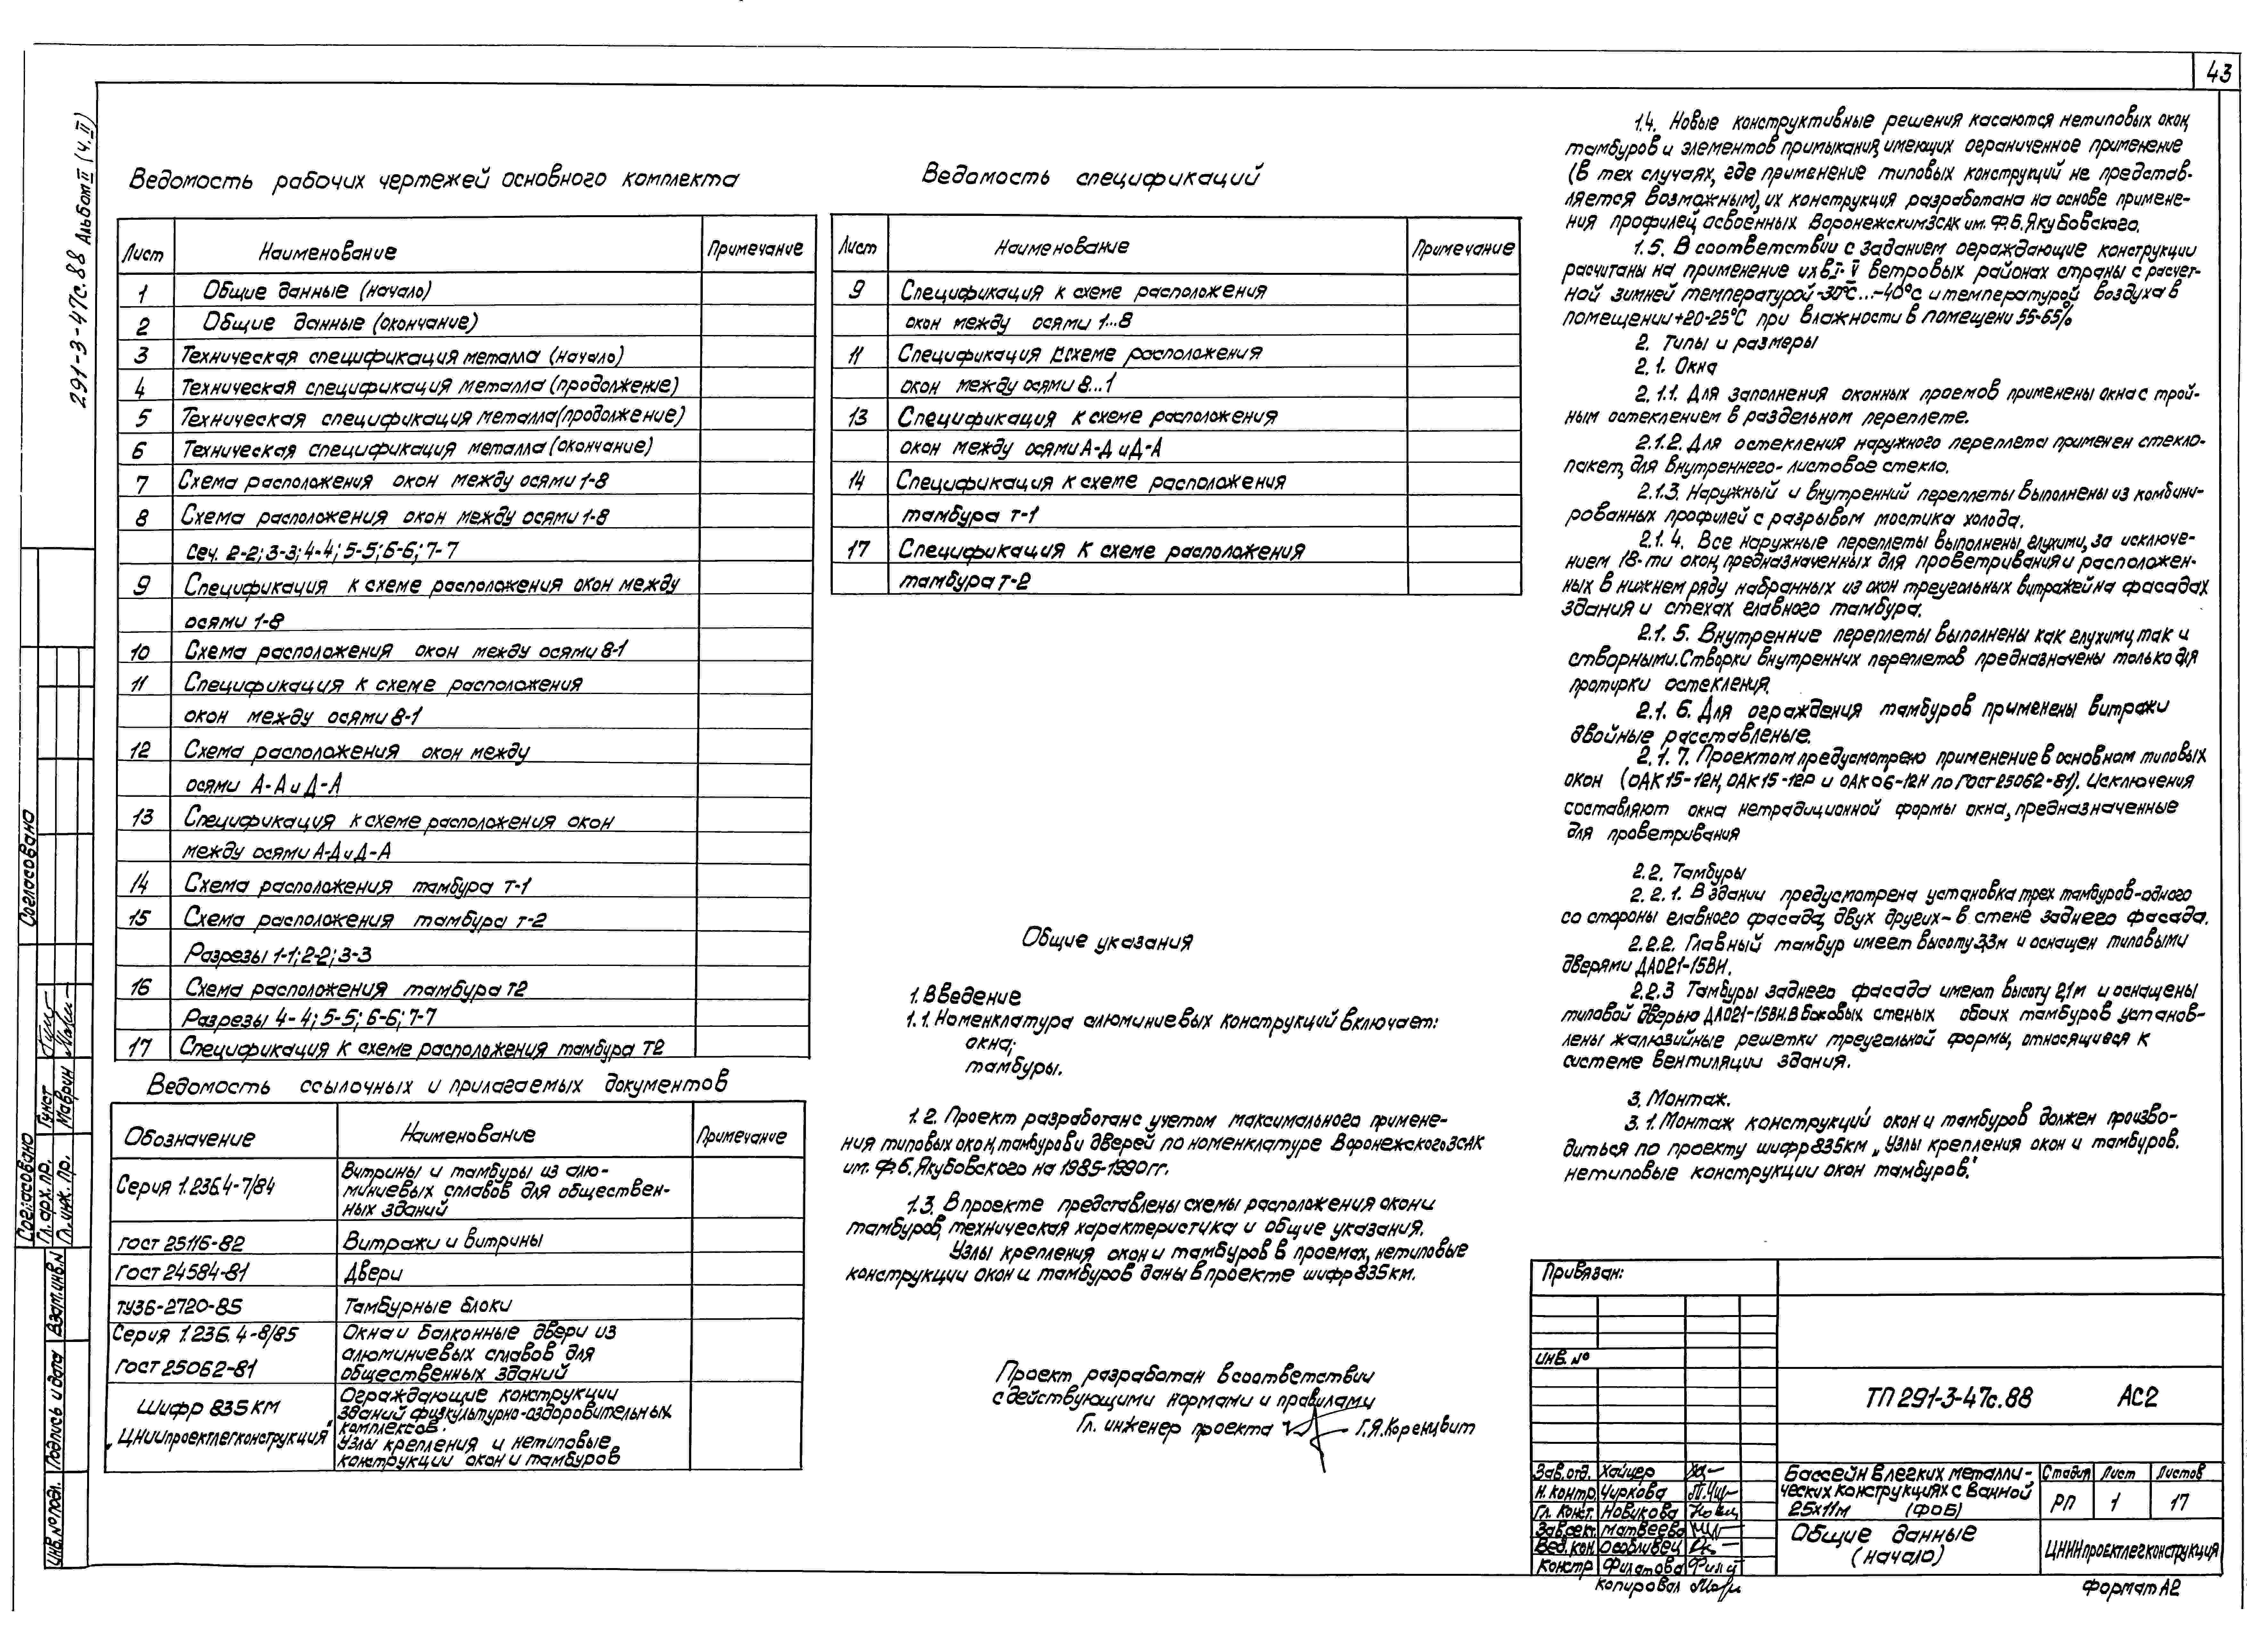 43
291-3-47с.88 Альбом II (ч. II)
Ведомость рабочих чертежей основного комплекта
Лист Наименование Примечание
1 Общие данные (начало)
2 Общие данные (окончание)
3 Техническая спецификация металла (начало)
4 Техническая спецификация металла (продолжение)
5 Техническая спецификация металла (продолжение)
6 Техническая спецификация металла (окончание)
7 Схема расположения окон между осями 1-8
8 Схема расположения окон между осями 1-8
Сеч. 2-2; 3-3; 4-4; 5-5; 6-6; 7-7
9 Спецификация к схеме расположения окон между
осями 1-8
10 Схема расположения окон между осями 8-1
11 Спецификация к схеме расположения
окон между осями 8-1
12 Схема расположения окон между
осями А-Д и Д-А
13 Спецификация к схеме расположения окон
между осями А-Д и Д-А
14 Схема расположения тамбура Т-1
15 Схема расположения тамбура Т-2
Разрезы 1-1; 2-2; 3-3
16 Схема расположения тамбура Т2
Разрезы 4-4; 5-5; 6-6; 7-7
17 Спецификация к схеме расположения тамбура Т2
Ведомость ссылочных и прилагаемых документов
Обозначение Наименование Примечание
Серия 1.236.4-7/84 Витрины и тамбуры из алю-
миниевых сплавов для обществен-
ных зданий
ГОСТ 25116-82 Витражи и витрины
ГОСТ 24584-81 Двери
ТУ36-2720-85 Тамбурные блоки
Серия 1.236.4-8/85 Окна и балконные двери из
алюминиевых сплавов для
ГОСТ 25062-81 общественных зданий
Шифр 835КМ Ограждающие конструкции
зданий физкультурно-оздоровительных
комплексов.
„ЦНИИпроектлегконструкция" Узлы крепления и нетиповые
конструкции окон и тамбуров
Ведомость спецификаций
Лист Наименование Примечание
9 Спецификация к схеме расположения
окон между осями 1...8
11 Спецификация к схеме расположения
окон между осями 8...1
13 Спецификация к схеме расположения
окон между осями А-Д и Д-А
14 Спецификация к схеме расположения
тамбура Т-1
17 Спецификация к схеме расположения
тамбура Т-2
Общие указания
1. Введение
1.1. Номенклатура алюминиевых конструкций включает:
окна;
тамбуры.
1.2. Проект разработан с учетом максимального примене-
ния типовых окон, тамбуров и дверей по номенклатуре Воронежского ЗСАК
им. Ф.Б. Якубовского на 1985-1990гг.
1.3. В проекте представлены схемы расположения окон и
тамбуров, техническая характеристика и общие указания.
Узлы крепления окон и тамбуров в проемах, нетиповые
конструкции окон и тамбуров даны в проекте шифр 835км.
Проект разработан в соответствии
с действующими нормами и правилами
Гл. инженер проекта Г.Я. Коренцвит
1.4. Новые конструктивные решения касаются нетиповых окон,
тамбуров и элементов примыкания, имеющих ограниченное применение
(в тех случаях, где применение типовых конструкций не представ-
ляется возможным), их конструкция разработана на основе примене-
ния профилей, освоенных Воронежским ЗСАК им. Ф.Б. Якубовского.
1.5. В соответствии с заданием ограждающие конструкции
расчитаны на применение их в I-V ветровых районах страны с расчет-
ной зимней температурой -30°С...-40°С и температурой воздуха в
помещении +20-25°С при влажности в помещени 55-65%
2. Типы и размеры
2.1. Окна
2.1.1. Для заполнения оконных проемов применены окна с трой-
ным остеклением в раздельном переплете.
2.1.2. Для остекления наружного переплета применен стекло-
пакет, для внутреннего - листовое стекло.
2.1.3. Наружный и внутренний переплеты выполнены из комбини-
рованных профилей с разрывом мостика холода.
2.1.4. Все наружные переплеты выполнены глухими, за исключе-
нием 18-ти окон, предназначенных для проветривания и расположен-
ных в нижнем ряду набранных из окон треугольных витражей на фасадах
здания и стехах главного тамбура.
2.1.5. Внутренние переплеты выполнены как глухими, так и
створными. Створки внутренних переплетов предназначены только для
протирки остекления.
2.1.6. Для ограждения тамбуров применены витражи
двойные расставленые.
2.1.7. Проектом предусмотрено применение в основном типовых
окон (ОАК15-12Н, ОАК15-12Р и ОАК06-12Н по ГОСТ 25062-81). Исключения
составляют окна нетрадиционной формы окна, предназначенные
для проветривания
2.2. Тамбуры
2.2.1. В здании предусмотрена установка трех тамбуров-одного
со стороны главного фасада, двух других - в стене заднего фасада.
2.2.2. Главный тамбур имеет высоту 3,3м и оснащен типовыми
дверями ДАО21-15ВН.
2.2.3 Тамбуры заднего фасада имеют высоту 2,1м и оснащены
типовой дверью ДАО21-15ВН. В боковых стеных обоих тамбуров установ-
лены жалюзийные решетки треугольной формы, относящиеся к
системе вентиляции здания.
3. Монтаж.
3.1. Монтаж конструкций окон и тамбуров должен произво-
диться по проекту шифр 835КМ „Узлы крепления окон и тамбуров.
нетиповые конструкции окон тамбуров."
Привязан:
Инв. №
ТП 291-3-47с.88 АС2
Зав. отд. Хайцер
Н. контр Чиркова
Гл. конст. Новикова
Зав. сект. Матвеева
Вед. кон. Особливец
Констр Филатова
Бассейн в легких металли-
ческих конструкциях с ванной
25х11м (ФОБ)
Стадия Лист Листов
РП 1 17
Общие данные
(начало)
ЦНИИпроектлегконструкция
Копировал
Формат А2
Согласовано
Согласовано
Гл. арх. пр. Гунст
Гл. инж. пр. Маврин
Взам. инв. N
Подпись и дата
Инв. № подл.